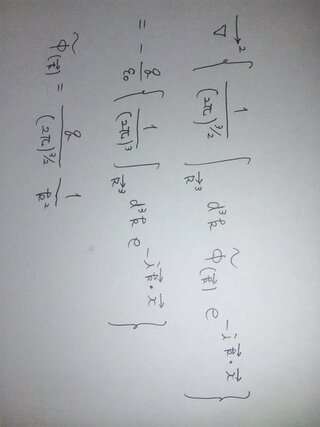 ∇⃗² { 1/(2π)^{3/2} ∫_{R⃗³} d³k Φ̃(k⃗) e^{-ik⃗·x⃗} }
= - q/ε₀ { 1/(2π)³ ∫_{R⃗³} d³k e^{-ik⃗·x⃗} }
Φ̃(k⃗) = q/(2π)^{3/2} 1/k²